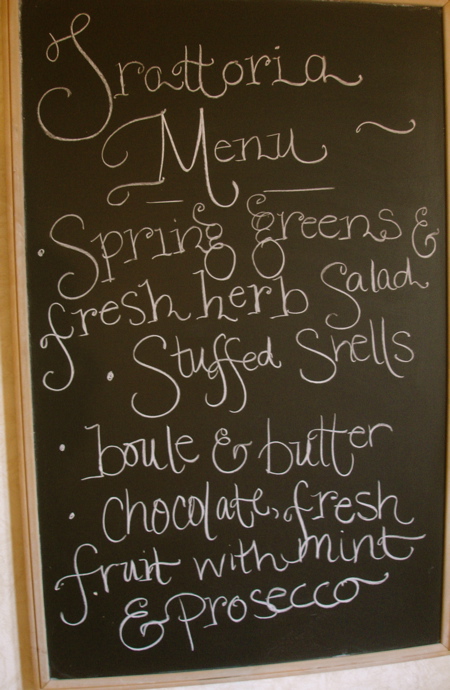 Trattoria
Menu
• Spring greens &
fresh herb Salad
• Stuffed Shells
• boule & butter
• Chocolate, fresh
fruit with mint
& prosecco